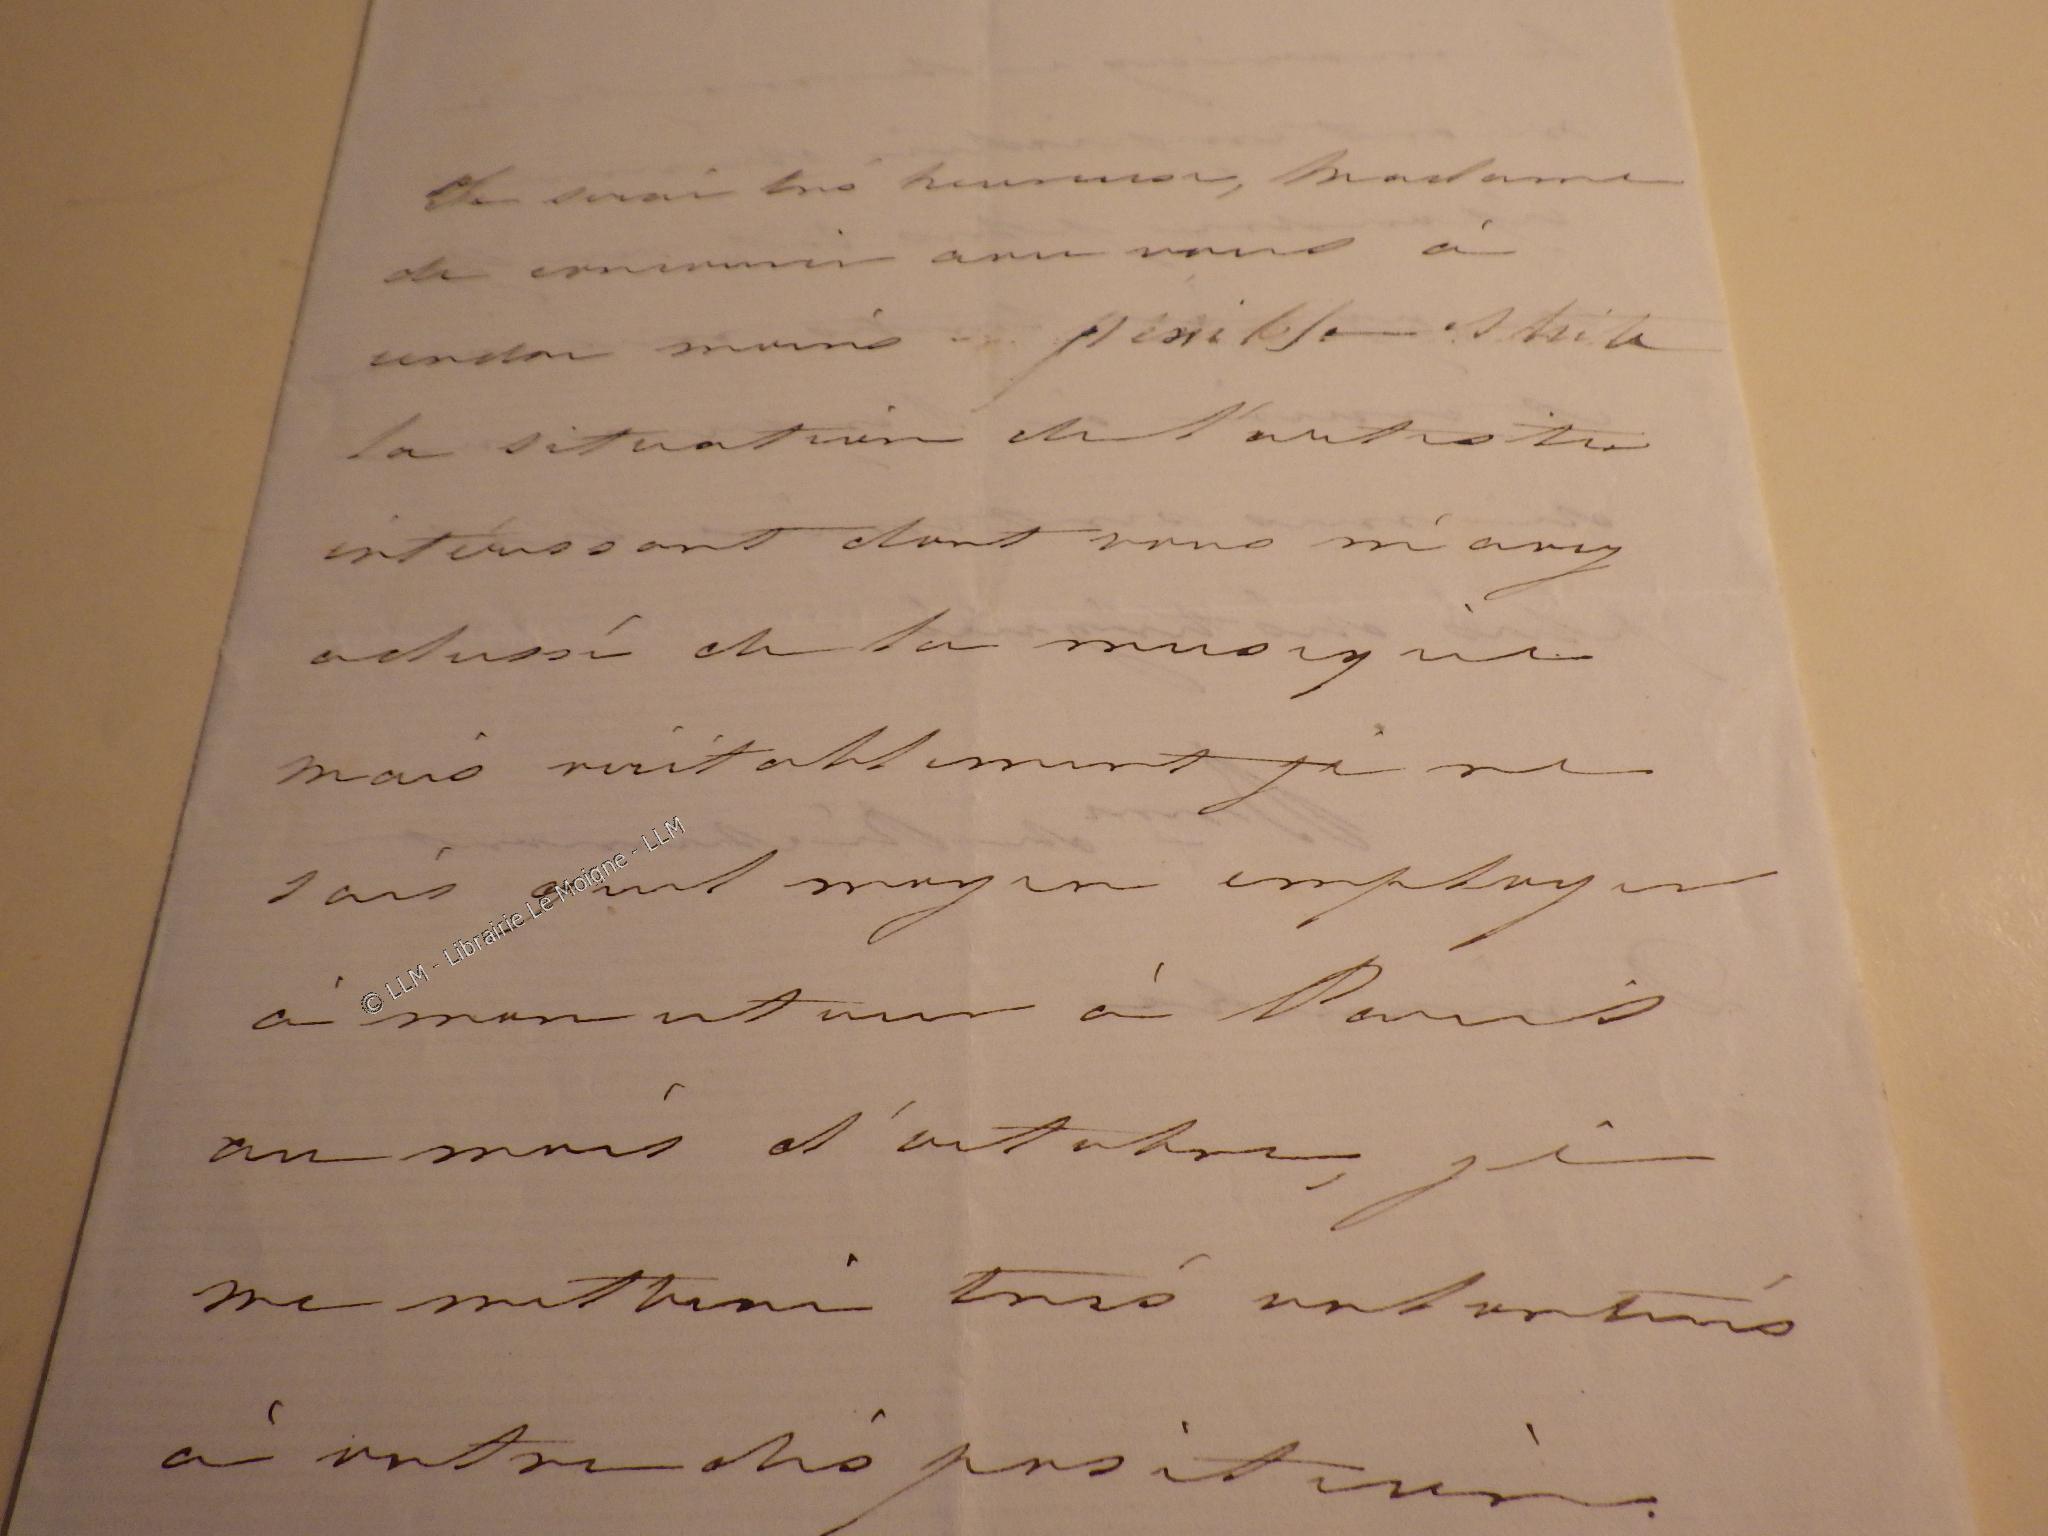 Je serai très heureuse, Madame
de concourir avec vous à
rendre moins pénible et triste
la situation de l'artiste
intéressant dont vous m'avez
adressé de la musique
mais véritablement je ne
sais quel moyen employer
à mon retour à Paris
au mois d'octobre, je
me mettrai très volontiers
à votre disposition.
© LLM - Librairie Le Moigne - LLM